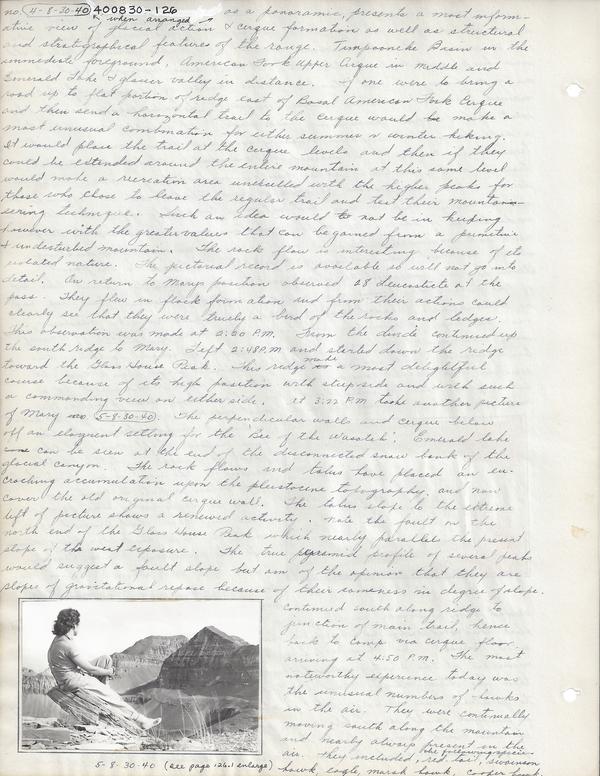 no. 4-8-30-40 400830-126 as a panoramic, presents a most inform-
when arranged
ative view of glacial action & cirque formation as well as structural
and stratigraphical features of the range. Timpanoke Basin in the
immediate foreground. American Fork Upper Cirque in middle and
Emerald Lake & glacier valley in distance. If one were to bring a
road up to flat portion of ridge east of Basal American Fork Cirque
and then send a horizontal trail to the cirque would make a
most unusual combination for either summer or winter hiking.
It would place the trail at the cirque levels and then if they
could be extended around the entire mountain at this same level
would make a recreation area unexcelled with the higher peaks for
those who chose to leave the regular trail and test their mountain-
eering technique. Such an idea would not be in keeping
however with the greater values that can be gained from a primitive
& undisturbed mountain. The rock flow is interesting because of its
isolated nature. The pictorial record is available so will not go into
detail. On return to Marys position observed 28 at the
pass. They flew in flock formation and from their actions could
clearly see that they were truely a bird of the rocks and ledges.
This observation was made at 2:20 P.M. From the divide continued up
the south ridge to Mary. Left 2:48 P.M and started down the ridge
toward the Glass House Peak. This ridge made a most delightful
course because of its high position with steep side and with such
a commanding view on either side. At 3:22 P.M took another picture
of Mary no. 5-8-30-40. The perpendicular walls and cirque below
off an eloquent setting for the 'Bee of the Wasatch'. Emerald lake
can be seen at the end of the disconnected snow bank of the
glacial canyon. The rock flows and talus have placed an en-
croching accumulation upon the pleistocene topography, and now
cover the old original cirque wall. The talus slope to the extreme
left of picture shows a renewed activity. Note the fault on the
north end of the Glass House Peak which nearly parallels the present
slope of the west exposure. The true pyramid profile of several peaks
would suggest a fault slope but am of the opinion that they are
slopes of gravitational repose because of their sameness in degree of slope.
Continued south along ridge to
junction of main trail, hence
back to camp via cirque floor
arriving at 4:50 P.M. The most
noteworthy experience today was
the unusual numbers of hawks
in the air. They were continually
moving south along the mountain
and nearly always present in the
air. They included, the following species red tail, swainson
hawk, eagle, marsh hawk, cooper hawk
5-8-30-40 (see page 126.1 enlarge)